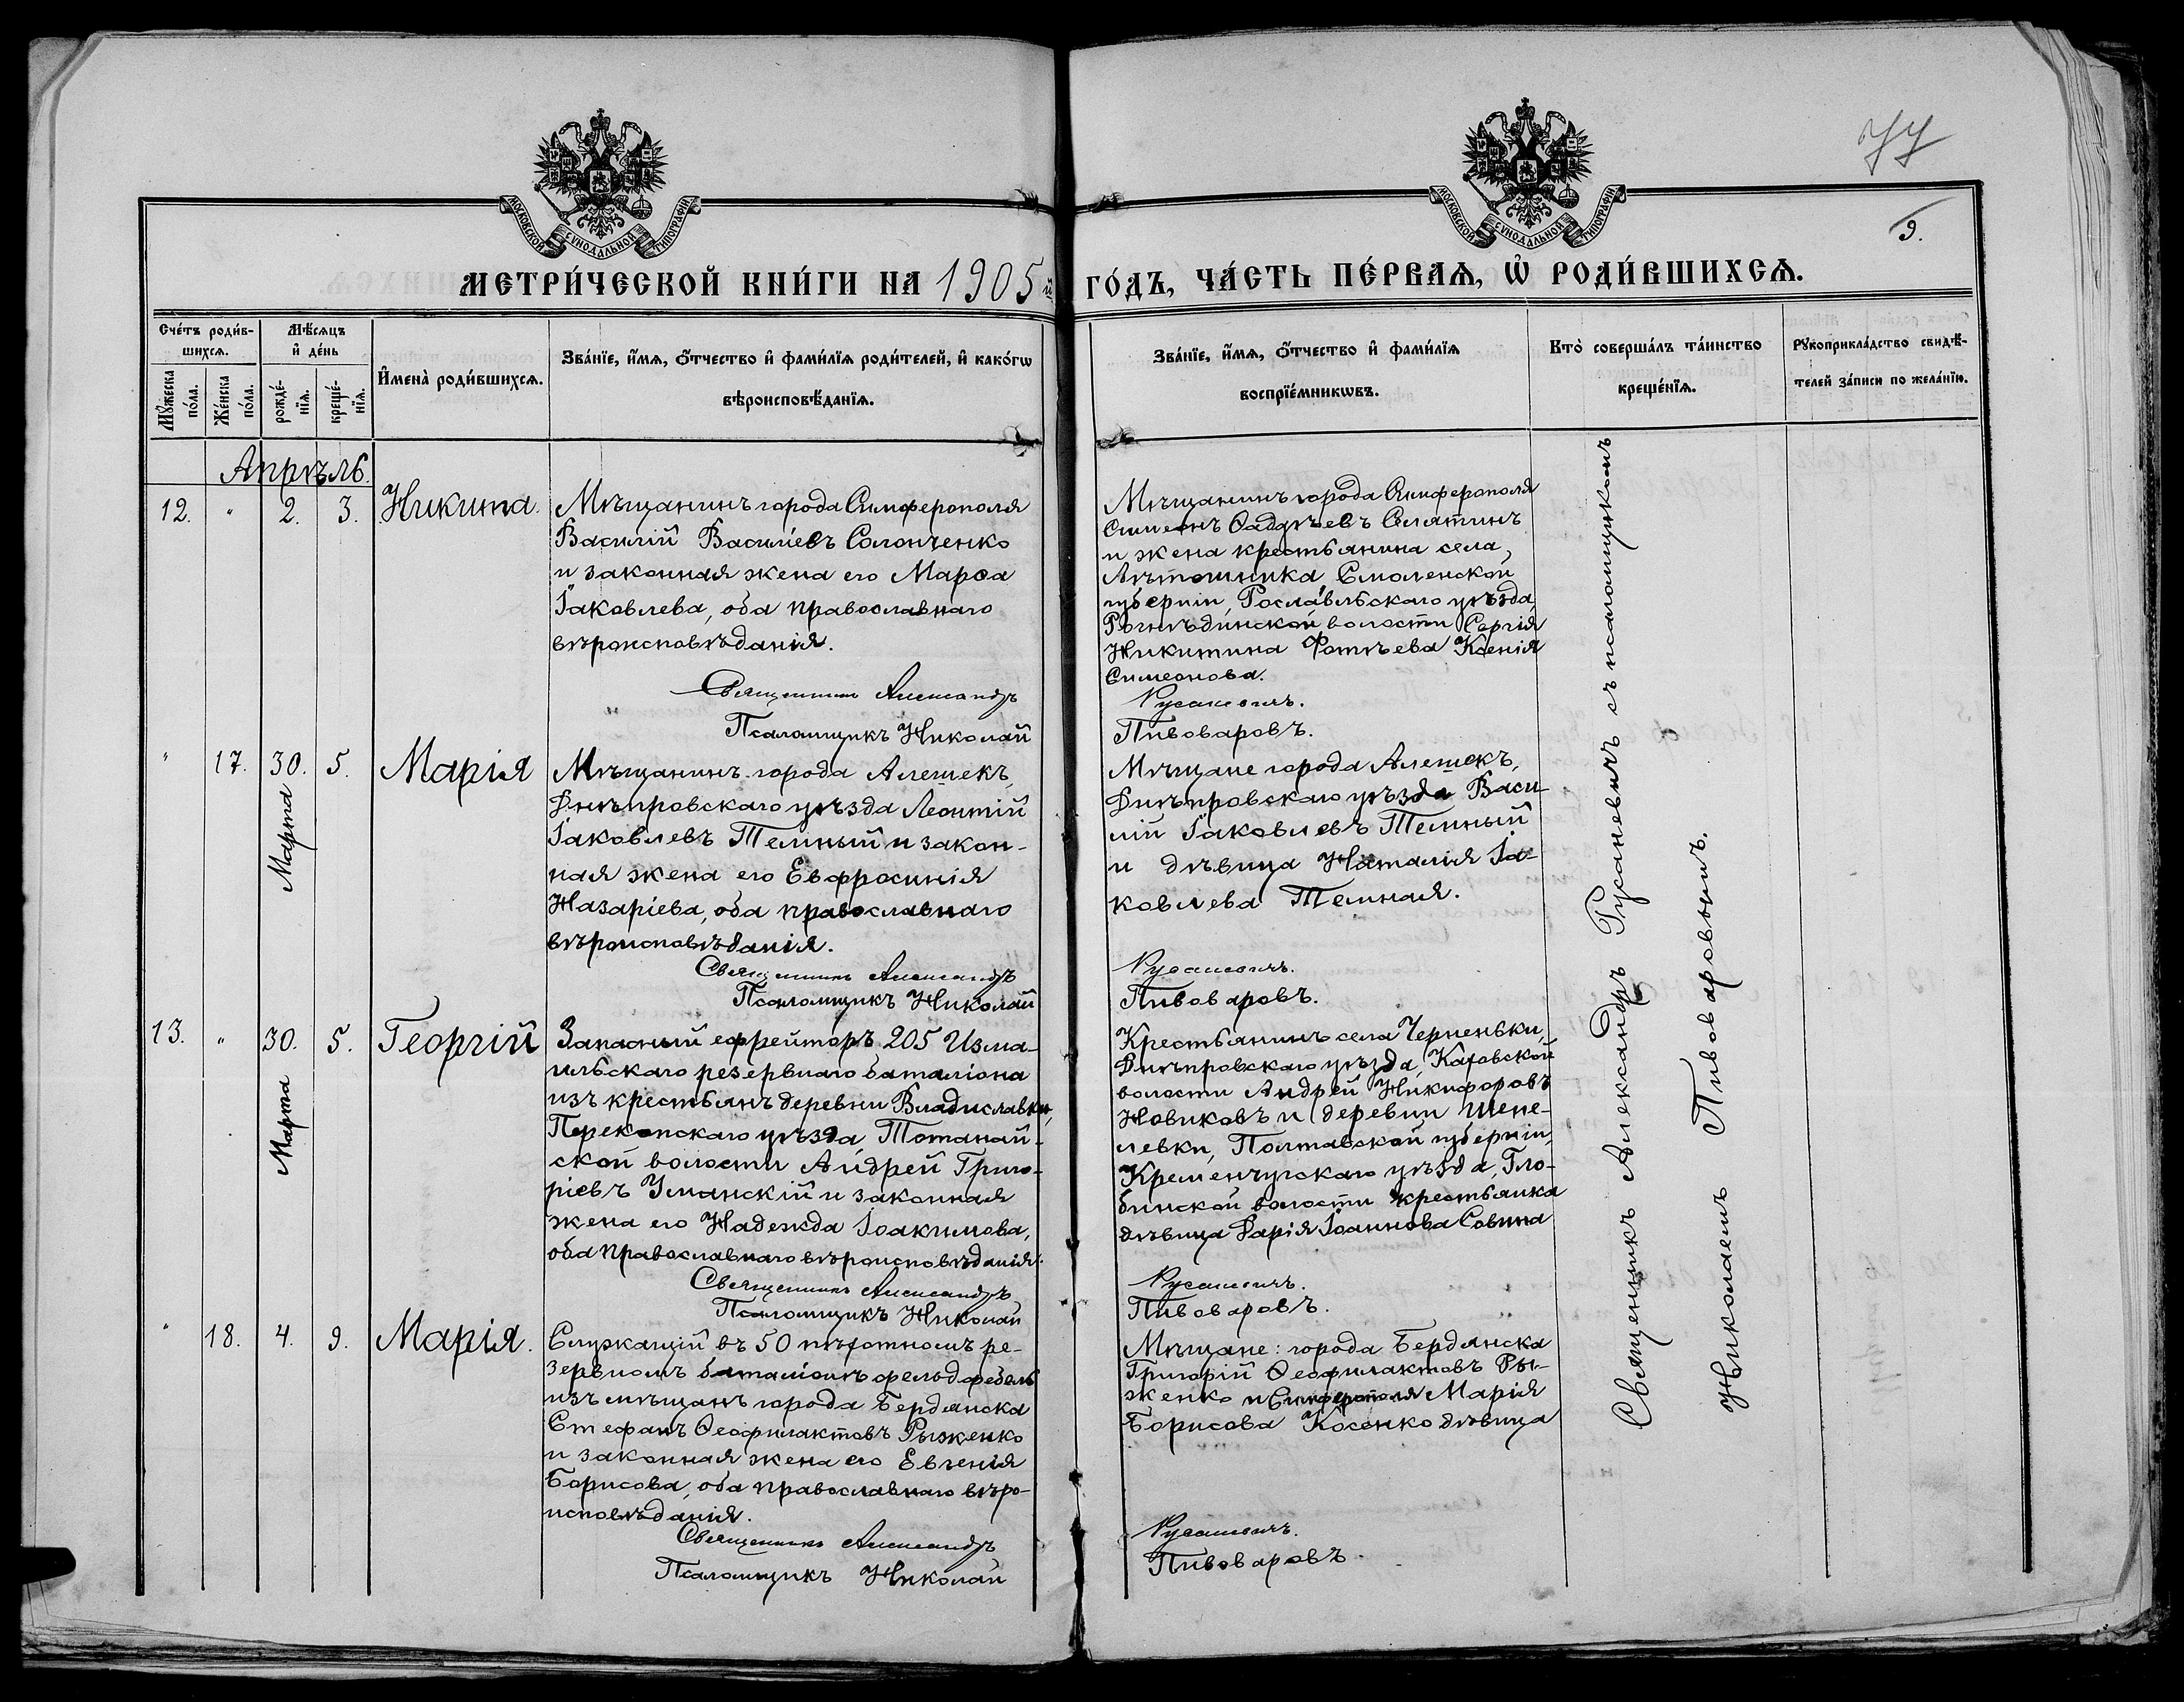 77
9.
МОСКОВСКОЙ СѴНОДАЛЬНОЙ ТИПОГРАФІИ
МОСКОВСКОЙ СѴНОДАЛЬНОЙ ТИПОГРАФІИ
МЕТРИ́ЧЕСКОЙ КНИ́ГИ НА 1905 й
ГО́ДЪ, ЧА́СТЬ ПЕ́РВАѦ, Ѡ҆ РОДИ́ВШИХСѦ.
Сче́тъ роди́в-
шихсѧ.
Мѣ́сѧцъ
и҆ де́нь
Мꙋ́жеска
по́ла.
Же́нска
по́ла.
рожде́-
нїѧ.
креще́-
нїѧ.
И҆мена̀ роди́вшихсѧ.
Зва́нїе, и҆́мѧ, ѻ҆́тчество и҆ фами́лїѧ роди́телей, и҆ како́гѡ
вѣроисповѣ́данїѧ.
Зва́нїе, и҆́мѧ, ѻ҆́тчество и҆ фами́лїѧ
воспрїе́мникѡвъ.
Кто̀ соверша́лъ та́инство
креще́нїѧ.
Рꙋкоприкла́дство свидѣ́-
телей за́писи по жела́нїю.
Апрѣль.
12. " 2. 3. Никита.
Мѣщанинъ города Симферополя
Василій Василіевъ Солонченко
и законная жена его Марѳа
Іаковлева, оба православнаго
вѣроисповѣданія.
Священникъ Александръ
Псаломщикъ Николай
Мѣщанинъ города Симферополя
Симеонъ Ѳаддѣевъ Селятинъ
и жена крестьянина села,
Лѣтошника, Смоленской
губерніи, Рославльскаго уѣзда,
Рогнѣдинской волости Сергія
Никитина Фотѣева Ксенія
Симеонова.
Русаневичъ.
Пивоваровъ.
" 17. 30. 5. Марія
Марта
Мѣщанинъ города Алешекъ,
Днѣпровскаго уѣзда Леонтій
Іаковлевъ Темный и закон-
ная жена его Евфросинія
Назаріева, оба православнаго
вѣроисповѣданія.
Священникъ Александръ
Псаломщикъ Николай
Мѣщане города Алешекъ,
Днѣпровскаго уѣзда Васи-
лій Іаковлевъ Темный
и дѣвица Наталія Іа-
ковлева Темная.
Русаневичъ.
Пивоваровъ.
13. " 30. 5. Георгій
Марта
Запасный ефрейторъ 205 Изма-
ильскаго резервнаго баталіона
изъ крестьянъ деревни Владиславки,
Перекопскаго уѣзда, Тотанай-
ской волости Андрей Григо-
ріевъ Уманскій и законная
жена его Надежда Іоакимова,
оба православнаго вѣроисповѣданія.
Священникъ Александръ
Псаломщикъ Николай
Крестьянинъ села Черненьки,
Днѣпровскаго уѣзда, Каховской
волости Андрей Никифоровъ
Новиковъ и деревни Шепе-
левки, Полтавской губерніи,
Кременчугскаго уѣзда, Гло-
бинской волости крестьянка
дѣвица Дарія Іоаннова Савина
Русаневичъ.
Пивоваровъ.
" 18. 4. 9. Марія.
Служащій въ 50 пѣхотномъ ре-
зервномъ баталіонѣ фельдфебель
изъ мѣщанъ города Бердянска
Стефанъ Ѳеофилактовъ Рыженко
и законная жена его Евгенія
Борисова, оба православнаго вѣро-
исповѣданія.
Священникъ Александръ
Псаломщикъ Николай
Мѣщане: города Бердянска
Григорій Ѳеофилактовъ Ры-
женко и Симферополя Марія
Борисова Косенко дѣвица
Русаневичъ.
Пивоваровъ.
Священникъ Александръ Русаневичъ съ псаломщикомъ
Николаемъ Пивоваровымъ.